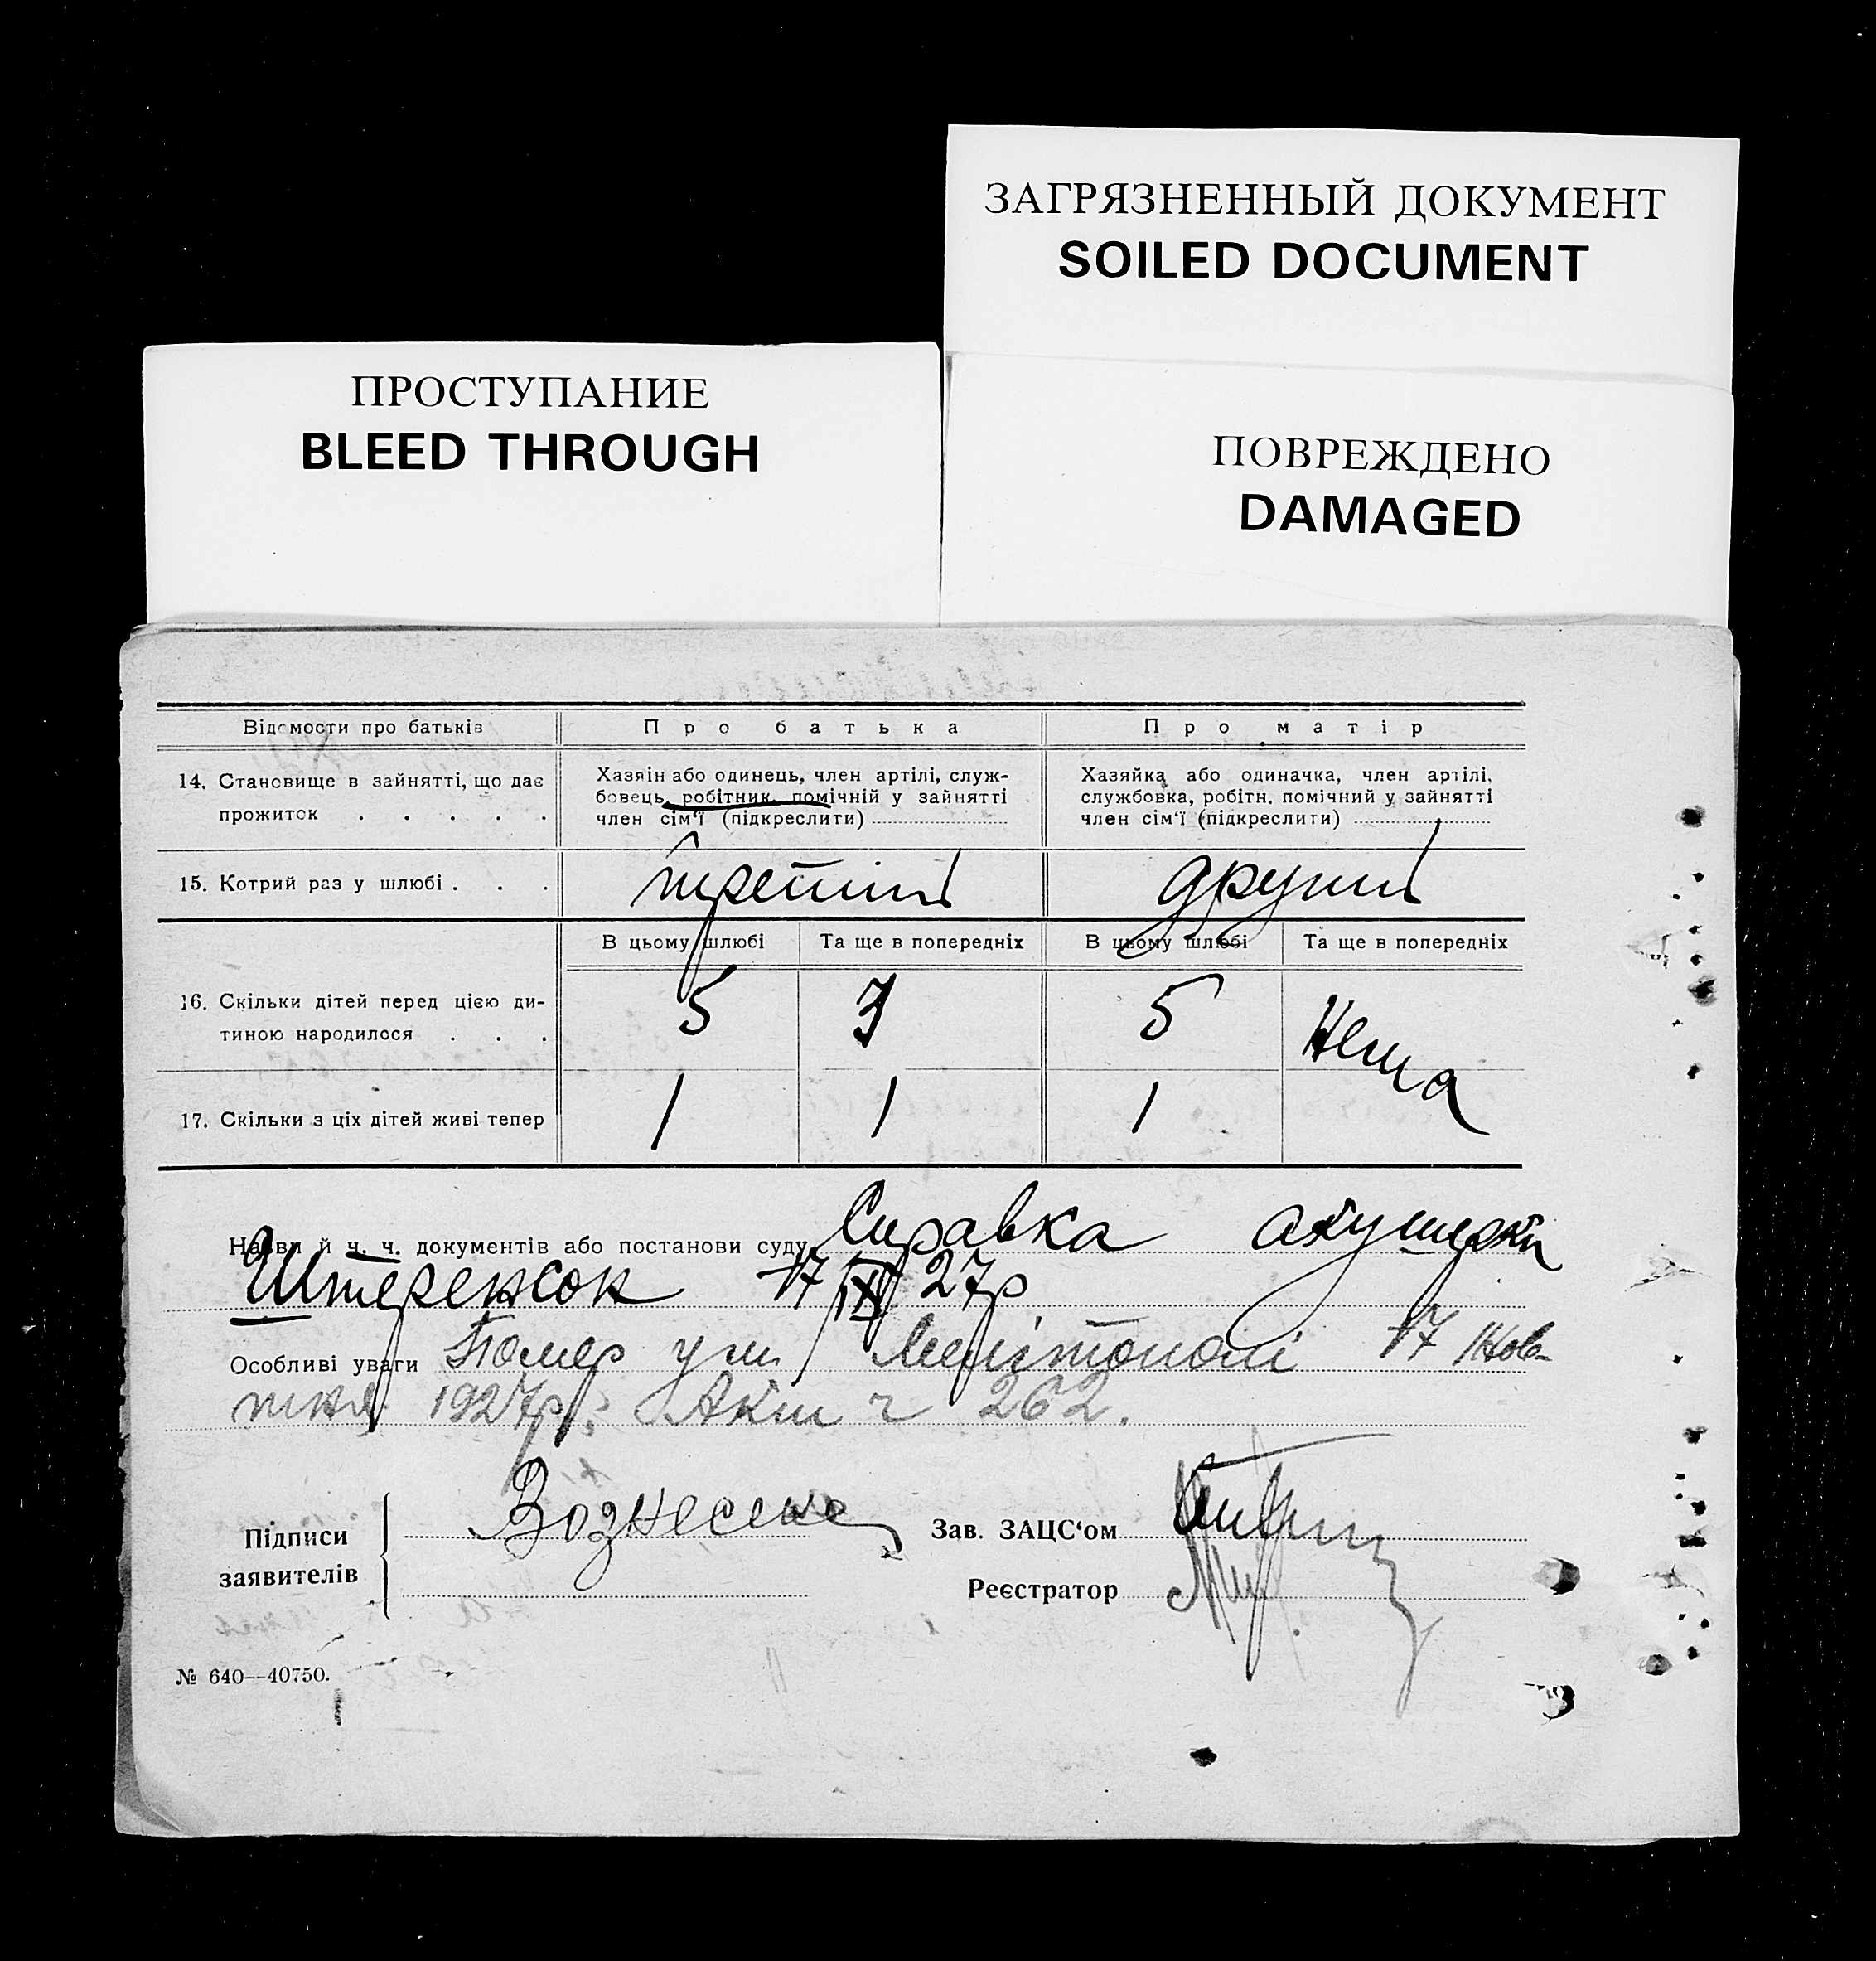 ЗАГРЯЗНЕННЫЙ ДОКУМЕНТ
SOILED DOCUMENT
ПРОСТУПАНИЕ
BLEED THROUGH
ПОВРЕЖДЕНО
DAMAGED
Відомости про батьків Про батька Про матір
14. Становище в зайнятті, що дає прожиток . . . . .
Хазяін або одинець, член артілі, служ-
бовець, робітник, помічній у зайнятті
член сім'ї (підкреслити)
Хазяйка або одиначка, член артілі,
службовка, робітн. помічний у зайнятті
член сім'ї (підкреслити)
15. Котрий раз у шлюбі . . . третій другий
В цьому шлюбі Та ще в попередніх В цьому шлюбі Та ще в попередніх
16. Скільки дітей перед цією ди-
тиною народилося . . . 5 3 5 Нема
17. Скільки з ціх дітей живі тепер 1 1 1
Назви й ч. ч. документів або постанови суду Справка акушерки
17 IX 27р
Особливі уваги Помер у м. Мелітополі 17 Жов-
тня 1927р. Акт ч 262.
Підписи
заявителів
Зав. ЗАЦС'ом
Реєстратор
№ 640—40750.